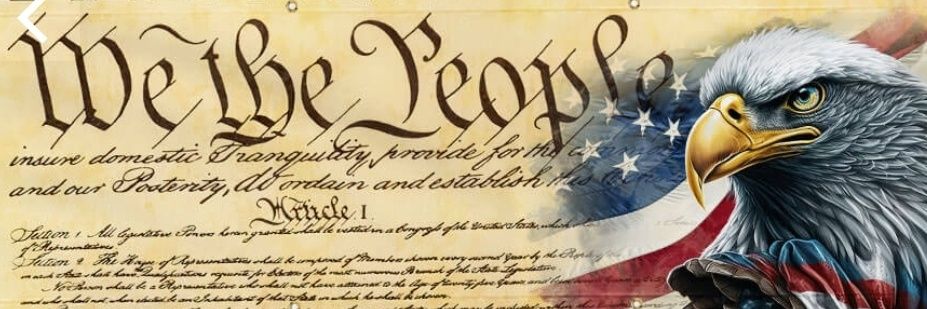 We the People
insure domestic Tranquility, provide for the
and our Posterity, do ordain and establish this
Article I.
Section 1 All legislative Powers herein granted shall be vested in a Congress of the United States, which
of Representatives
Section 2 The House of Representatives shall be composed of Members chosen every second Year by the People
in each State shall have Qualifications requisite for Electors of the most numerous Branch of the State Legislature
No Person shall be a Representative who shall not have attained to the Age of twenty five Years and
and who shall not when elected be an Inhabitant of that State in which he shall be chosen.